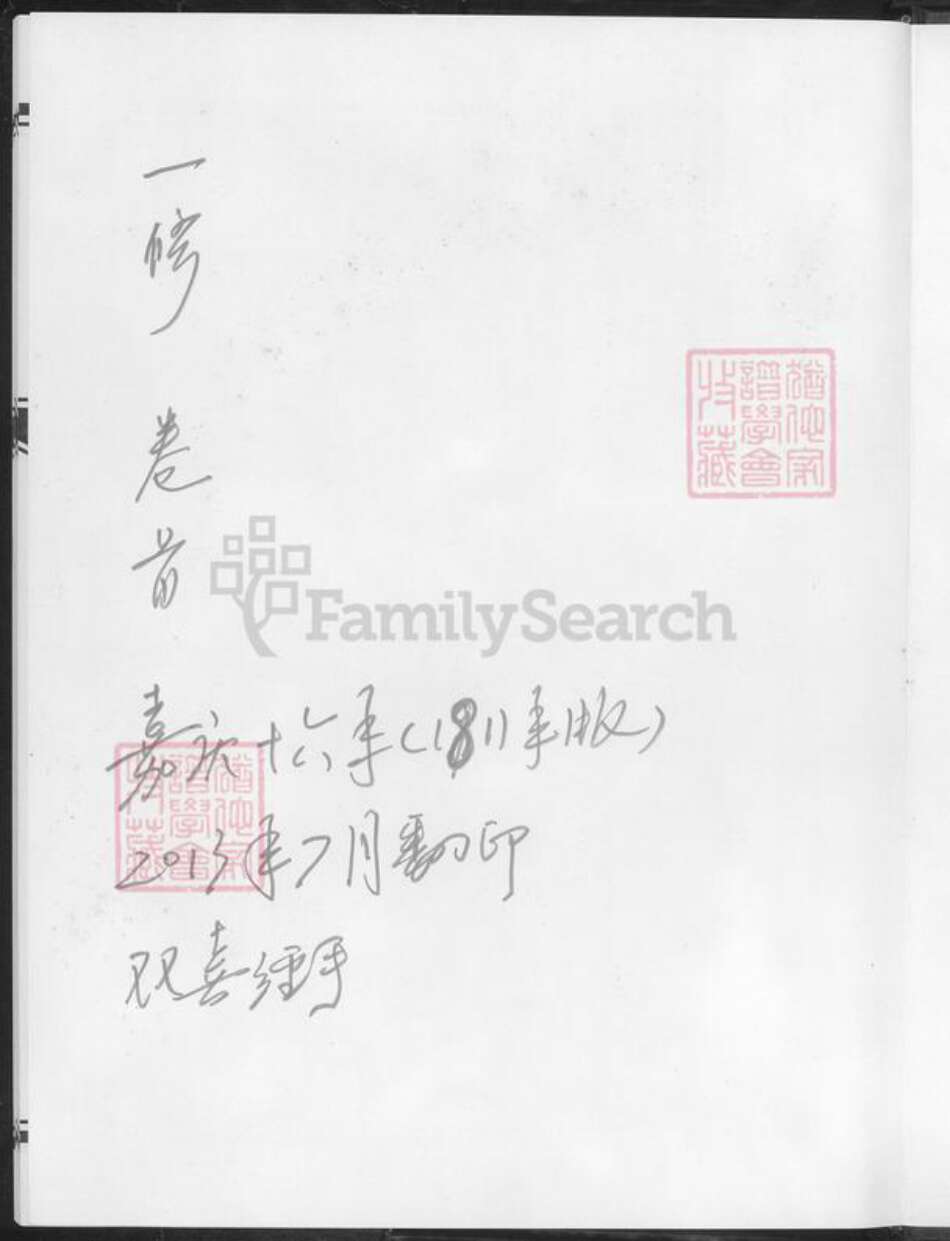 一修
卷首
嘉庆十六年(1811年版)
2013年7月翻印
双喜经手
猶他家
譜學會
收藏
FamilySearch